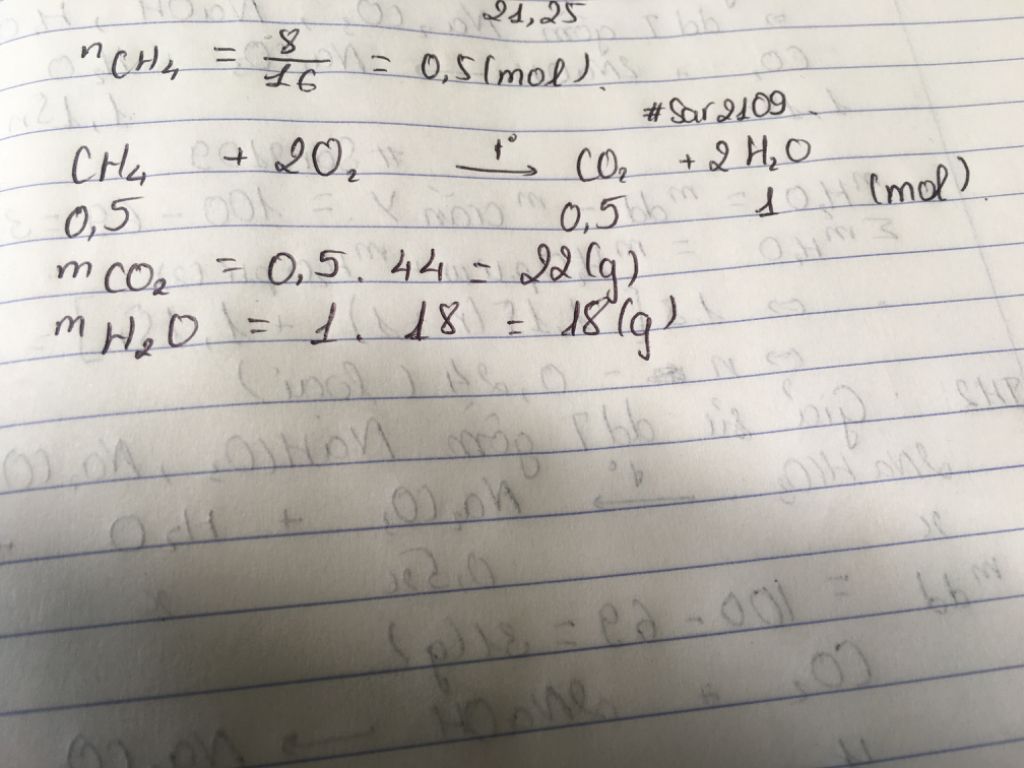 21,25
nCH₄ = 8/16 = 0,5 (mol).
#Sar2109
CH₄ + 2O₂ —t°→ CO₂ + 2H₂O
0,5 0,5 1 (mol).
mCO₂ = 0,5. 44 = 22(g)
mH₂O = 1. 18 = 18(g)